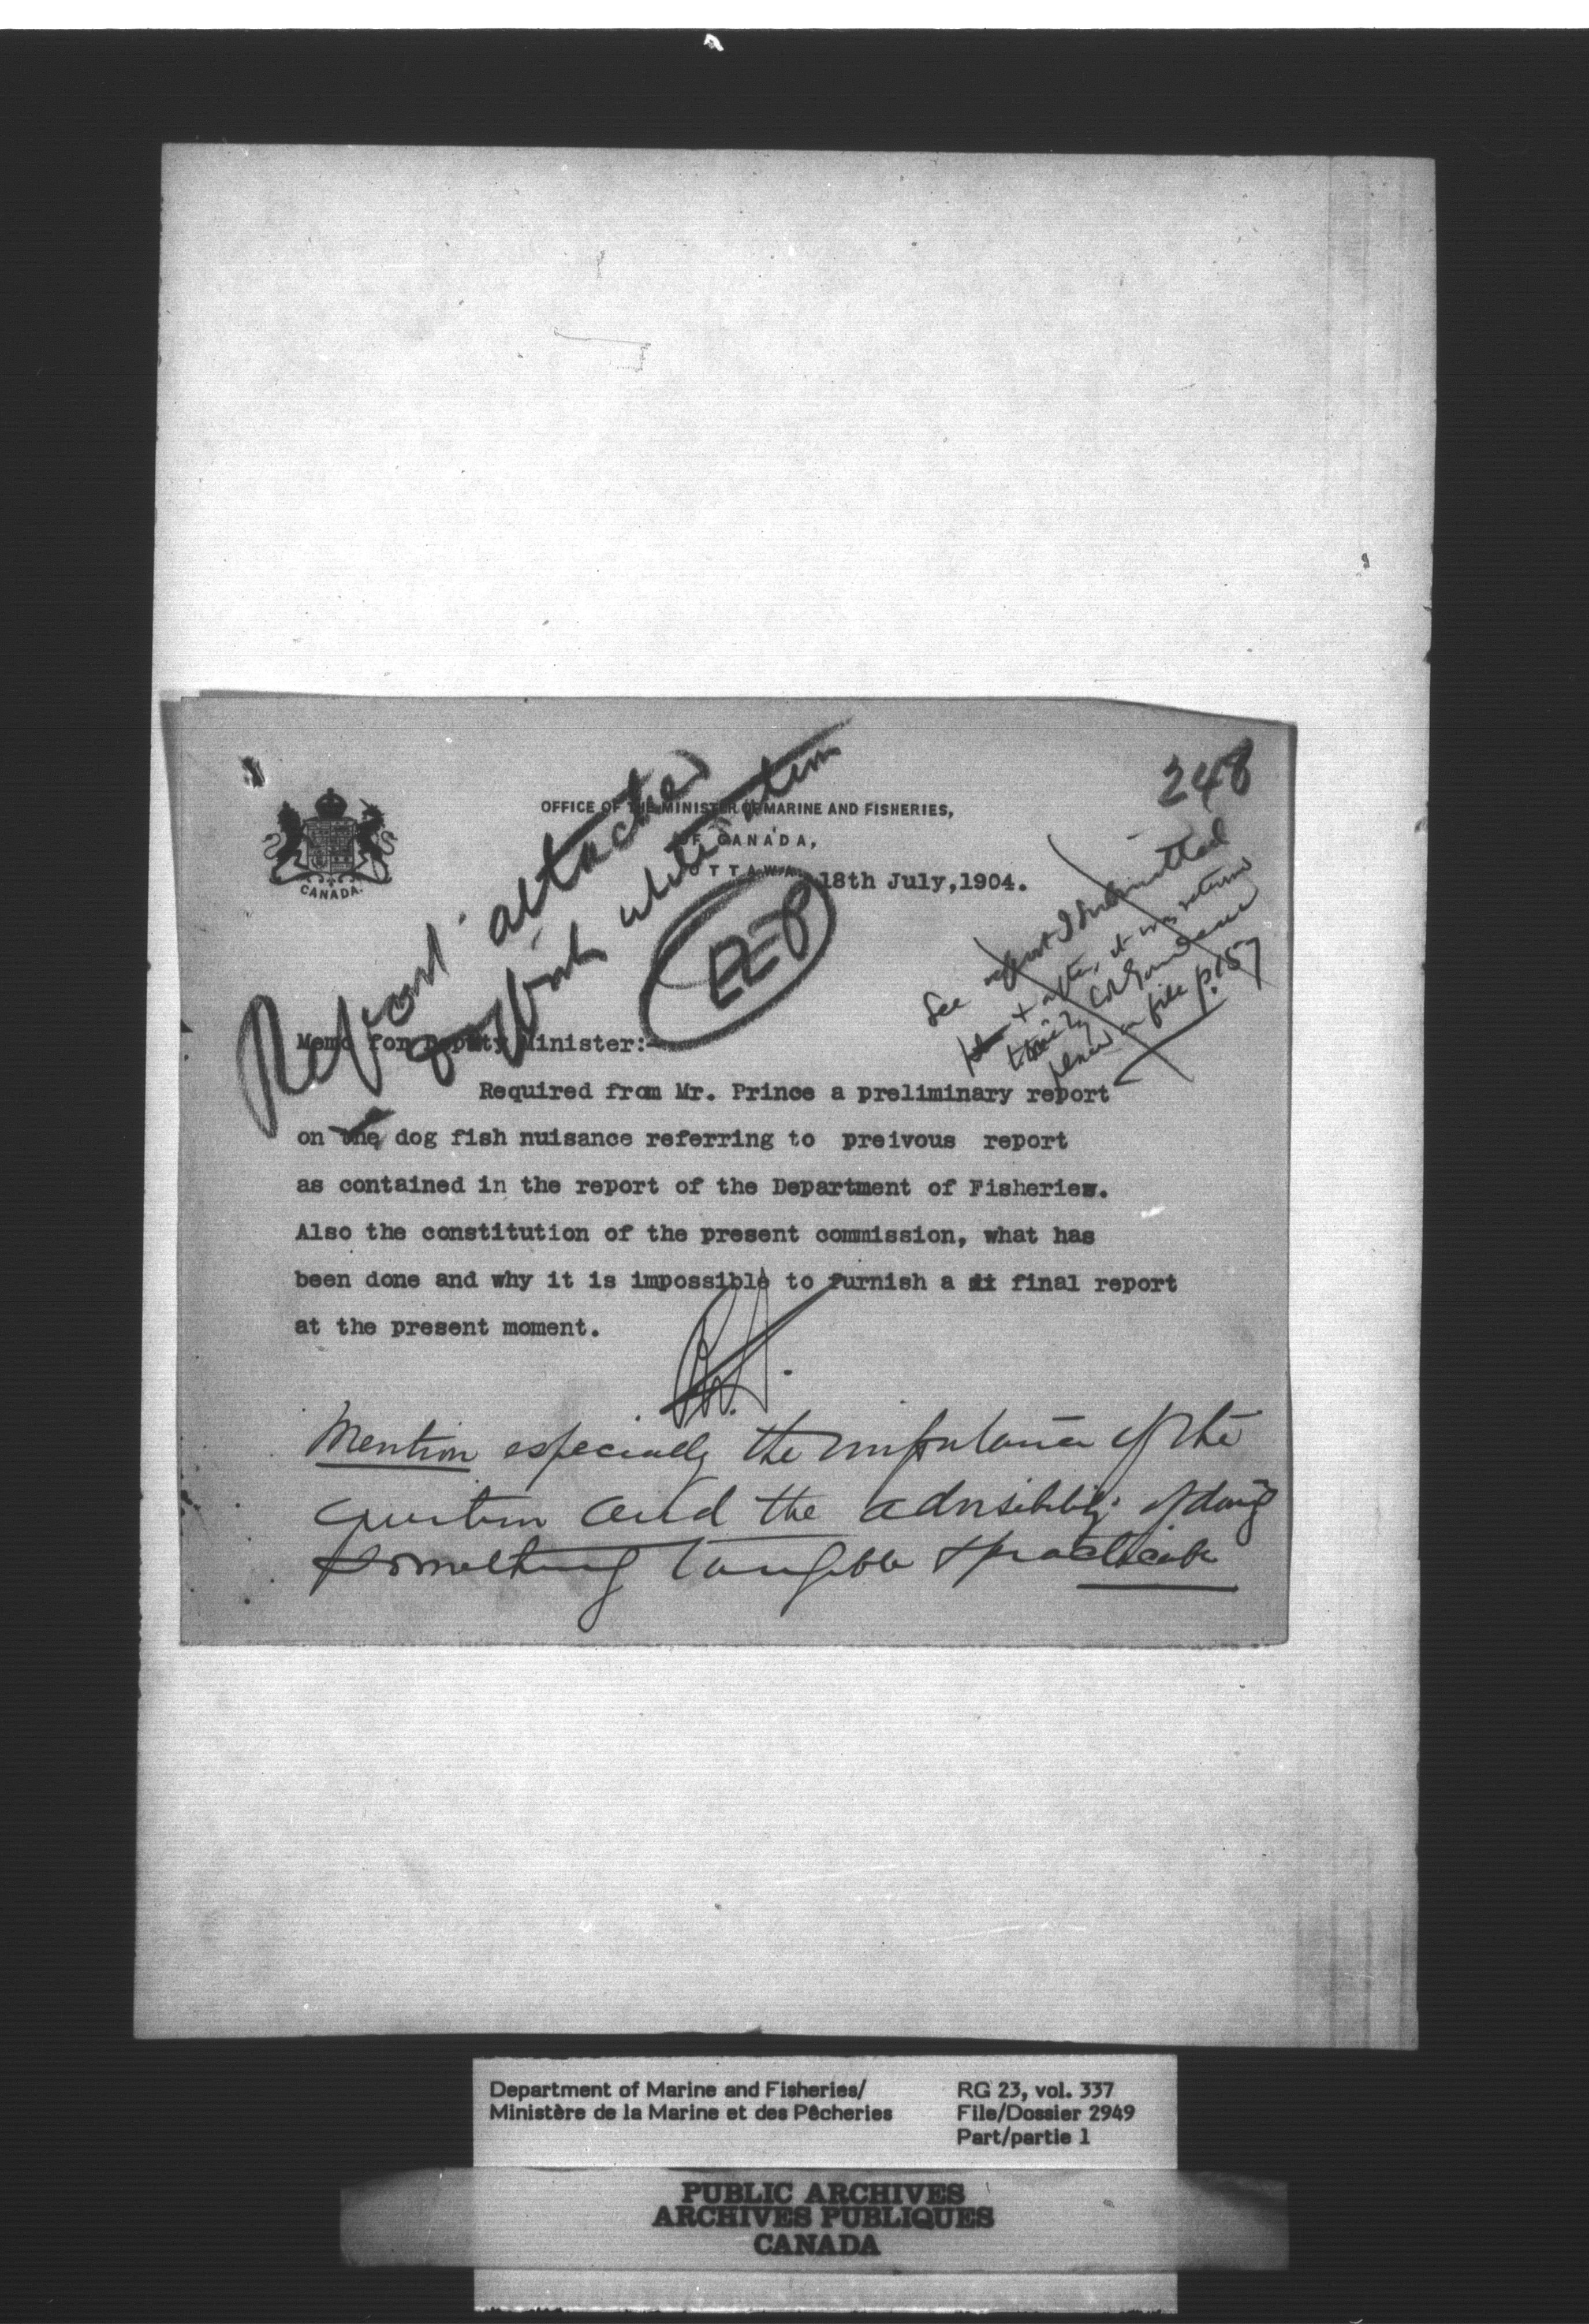 248
OFFICE OF THE MINISTER OF MARINE AND FISHERIES,
OF CANADA,
OTTAWA 18th July,1904.
CANADA.
Report attached
EEP
See report I submitted
& after, it was returned
on file p. 157
Memo for Deputy Minister:-
Required from Mr. Prince a preliminary report
on the dog fish nuisance referring to preivous report
as contained in the report of the Department of Fisheries.
Also the constitution of the present commission, what has
been done and why it is impossible to furnish a final report
at the present moment.
Mention especially the importance of the
question and the advisibility of doing
something tangible & practicable
Department of Marine and Fisheries/
Ministère de la Marine et des Pêcheries
RG 23, vol. 337
File/Dossier 2949
Part/partie 1
PUBLIC ARCHIVES
ARCHIVES PUBLIQUES
CANADA